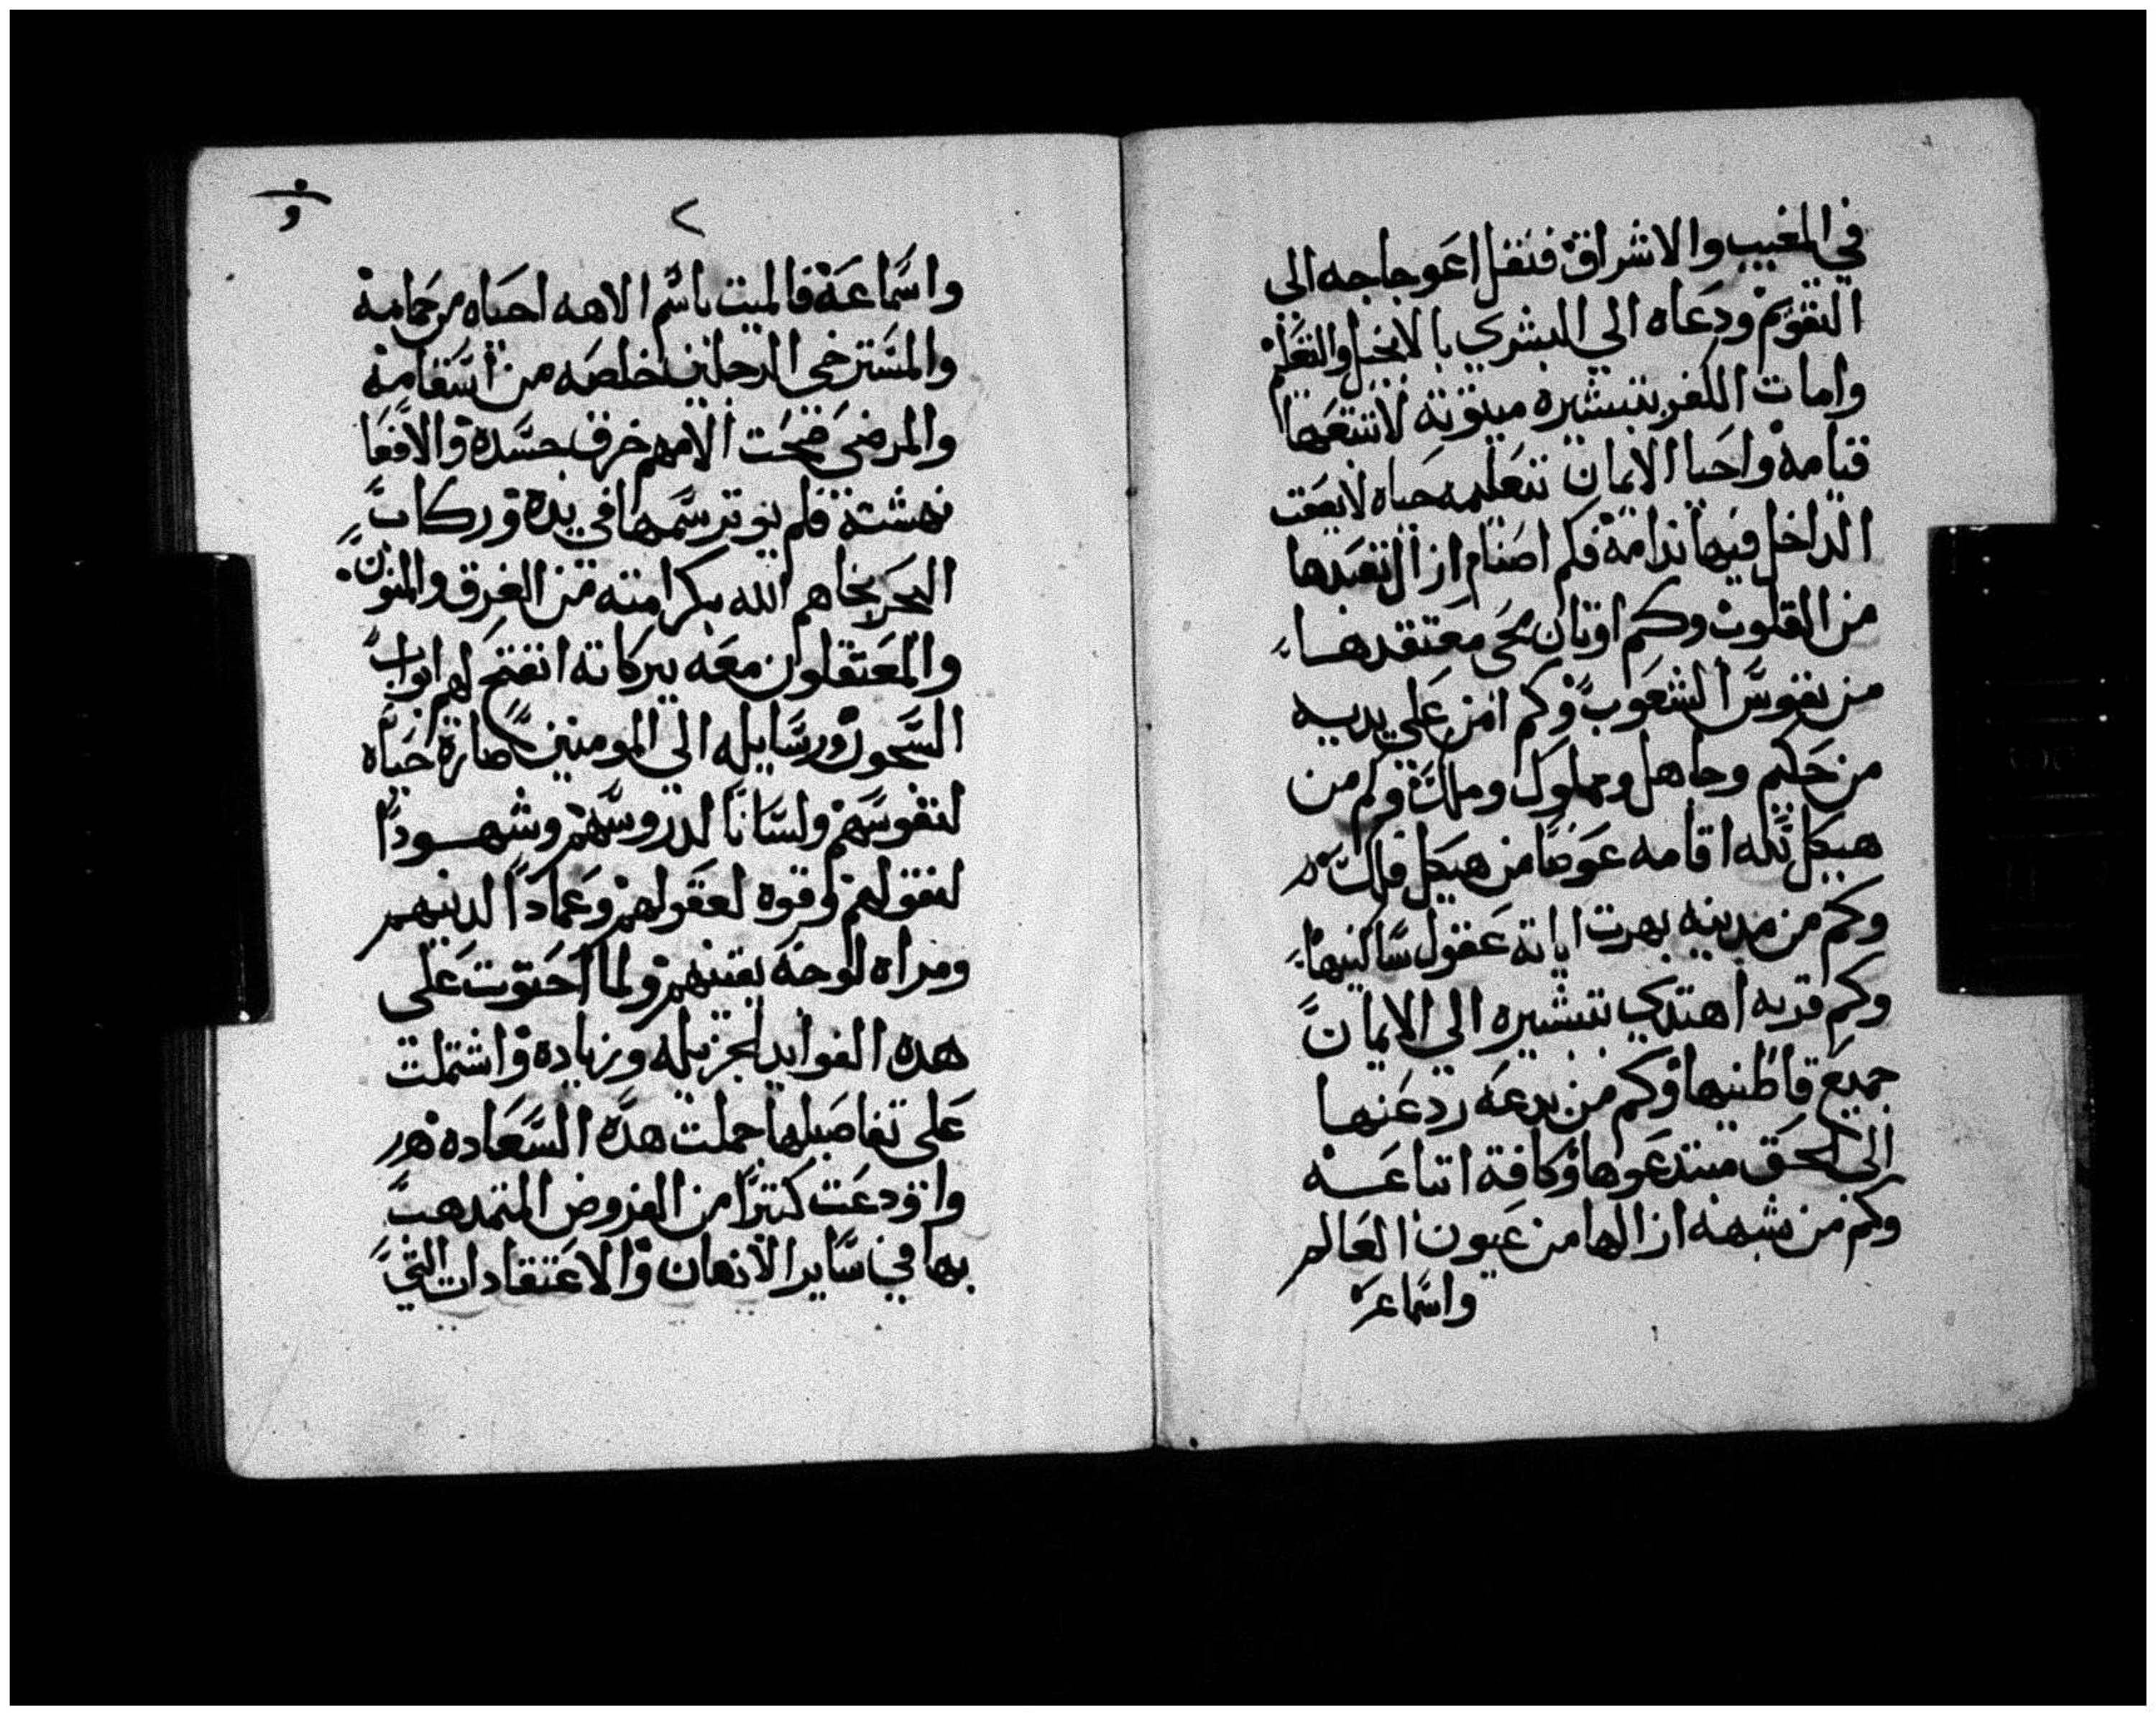 في المغيب والاشراق فنقل اعوجاجه الي
التقويم ودعاه الي البشري بالانجيل والتعليم
وامات الكفر بتبشيره ميتوتة لا تتبعها
قيامة واحيا الايمان بتعليمه حياه لا يعقب
الداخل فيها ندامة فكم اصنام ازال تعبدها
من القلوب وكم اوثان محي معتقدها
من نفوس الشعوب وكم امن علي يديه
من حكيم وجاهل ومملوك وملك وكم من
هيكل لله اقامه عوضا من هيكل فلك
وكم من مدينه بهرت اياته عقول ساكنيها
وكم قريه اهتدي بتبشيره الي الايمان
جميع قاطنيها وكم من بدعه ردع عنها
الي الحق مبتدعوها وكافة اتباعه
وكم من شبهه ازالها من عيون العالم
واسماعه
و
واسماعه فالميت باسم الاهه احياه من حمامه
والمسترخي الرجلين خلصه من اسقامه
والمرضي صحت الامهم خرق جسده والافعا
نهشته فلم يوتر سمها في يده وركاب
البحر نجاهم الله بكرامته من الغرق والمنون
والمعتقلون معه ببركاته انفتح لهم ابواب
السجون ورسايله الي المومنين صارة حياه
لنفوسهم ولسانا لدروسهم وشهودا
لنقولهم وقوه لعقولهم وعمادا لدينهم
ومراه لوجه يقينهم ولما احتوت علي
هده الفوايد الجزيله وزياده واشتملت
علي تفاصيلها جملت هده السعاده
واودعت كثيرا من الفروض المتمدهب
بها في ساير الادهان والاعتقادات التي